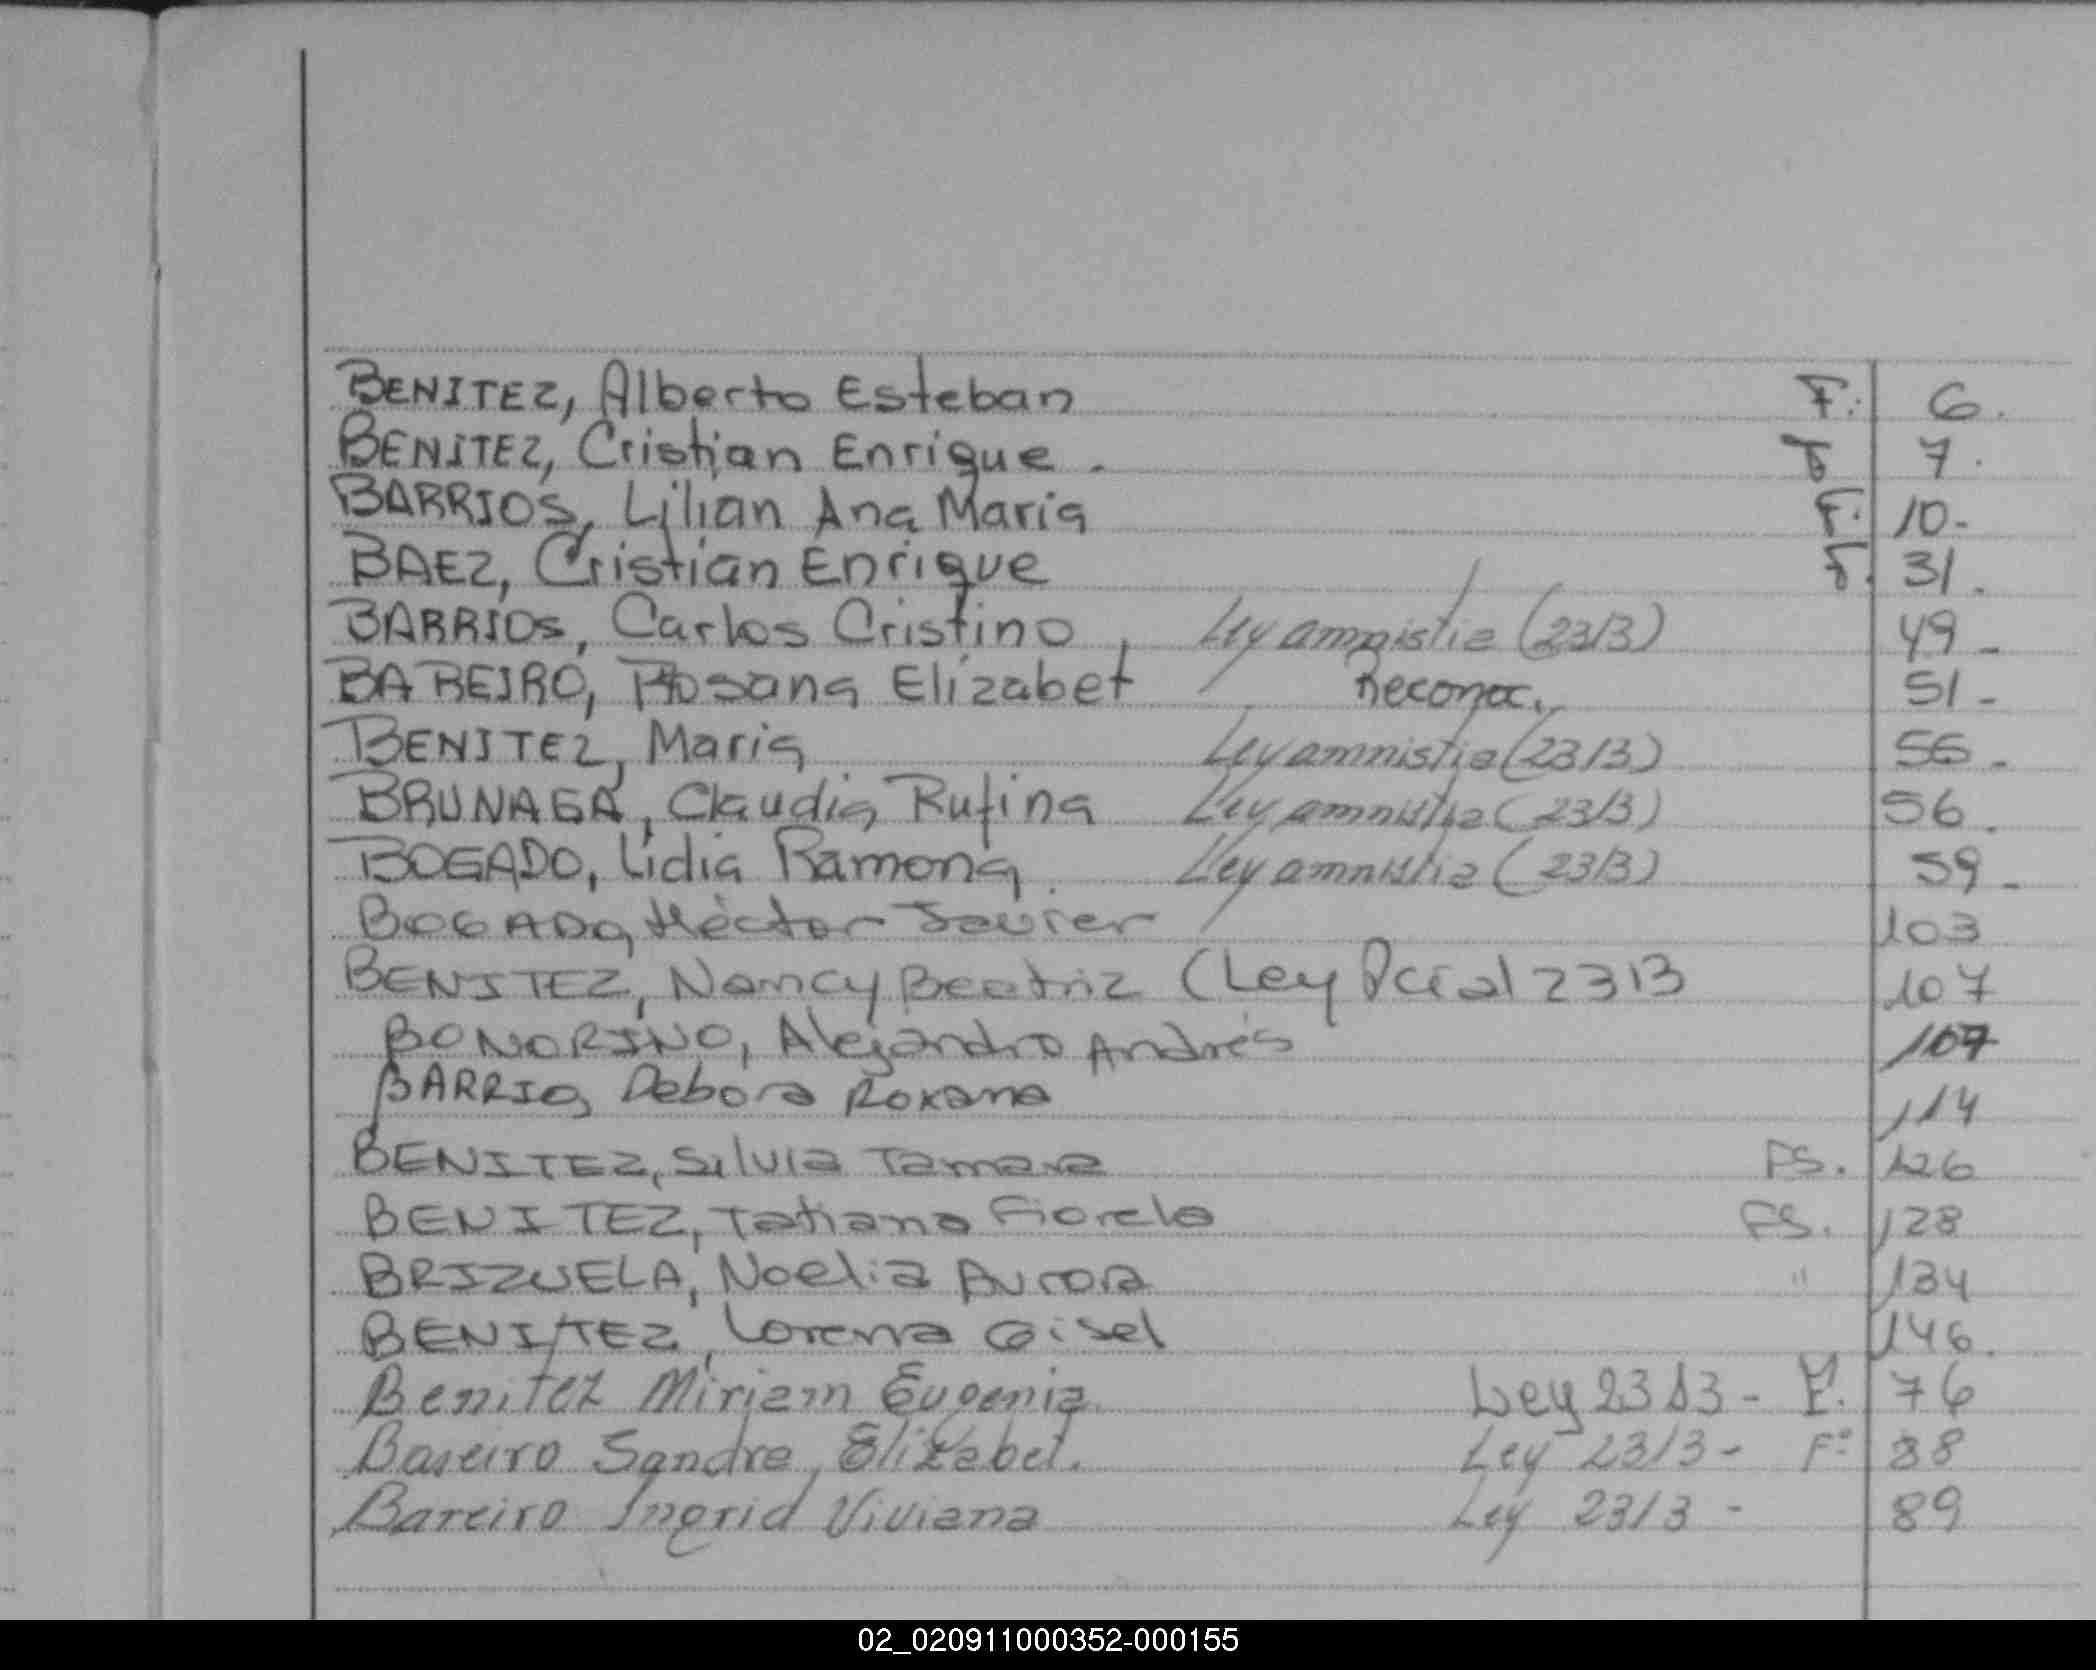 BENITEZ, Alberto Esteban F. 6.
BENITEZ, Cristian Enrique. F 7.
BARRIOS, Lilian Ana Maria F. 10-
BAEZ, Cristian Enrique F. 31.
BARRIOS, Carlos Cristino, Ley amnistia (2313) 49-
BAREIRO, Rosana Elizabet Reconoc. 51-
BENITEZ, Maria Ley amnistia (2313) 55-
BRUNAGA, Claudia Rufina Ley amnistia (2313) 56.
BOGADO, Lidia Ramona. Ley amnistia (2313) 59-
BOGADO, Héctor Javier 103
BENITEZ, Nancy Beatriz (Ley Pcial 2313 107
BONORINO, Alejandro Andrés 107
BARRIO, Debora Roxana 114
BENITEZ, Silvia Tamara FS. 126
BENITEZ, Tatiana Fiorela FS. 128
BRIZUELA, Noelia Aurora " 134
BENITEZ, Lorena Gisel 146.
Benitez Miriam Eugenia Ley 2313- F. 76
Bareiro Sandra Elizabet. Ley 2313- Fº 88
Bareiro Ingrid Viviana Ley 2313- 89
02_020911000352-000155